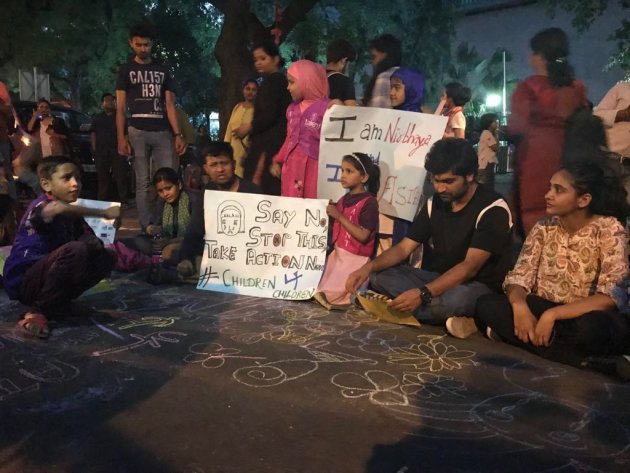 CAL157
H3N
I am Nirbhaya
I
ASIF
SAY NO,
STOP THIS
TAKE ACTION NOW
# CHILDREN 4
CHILDREN